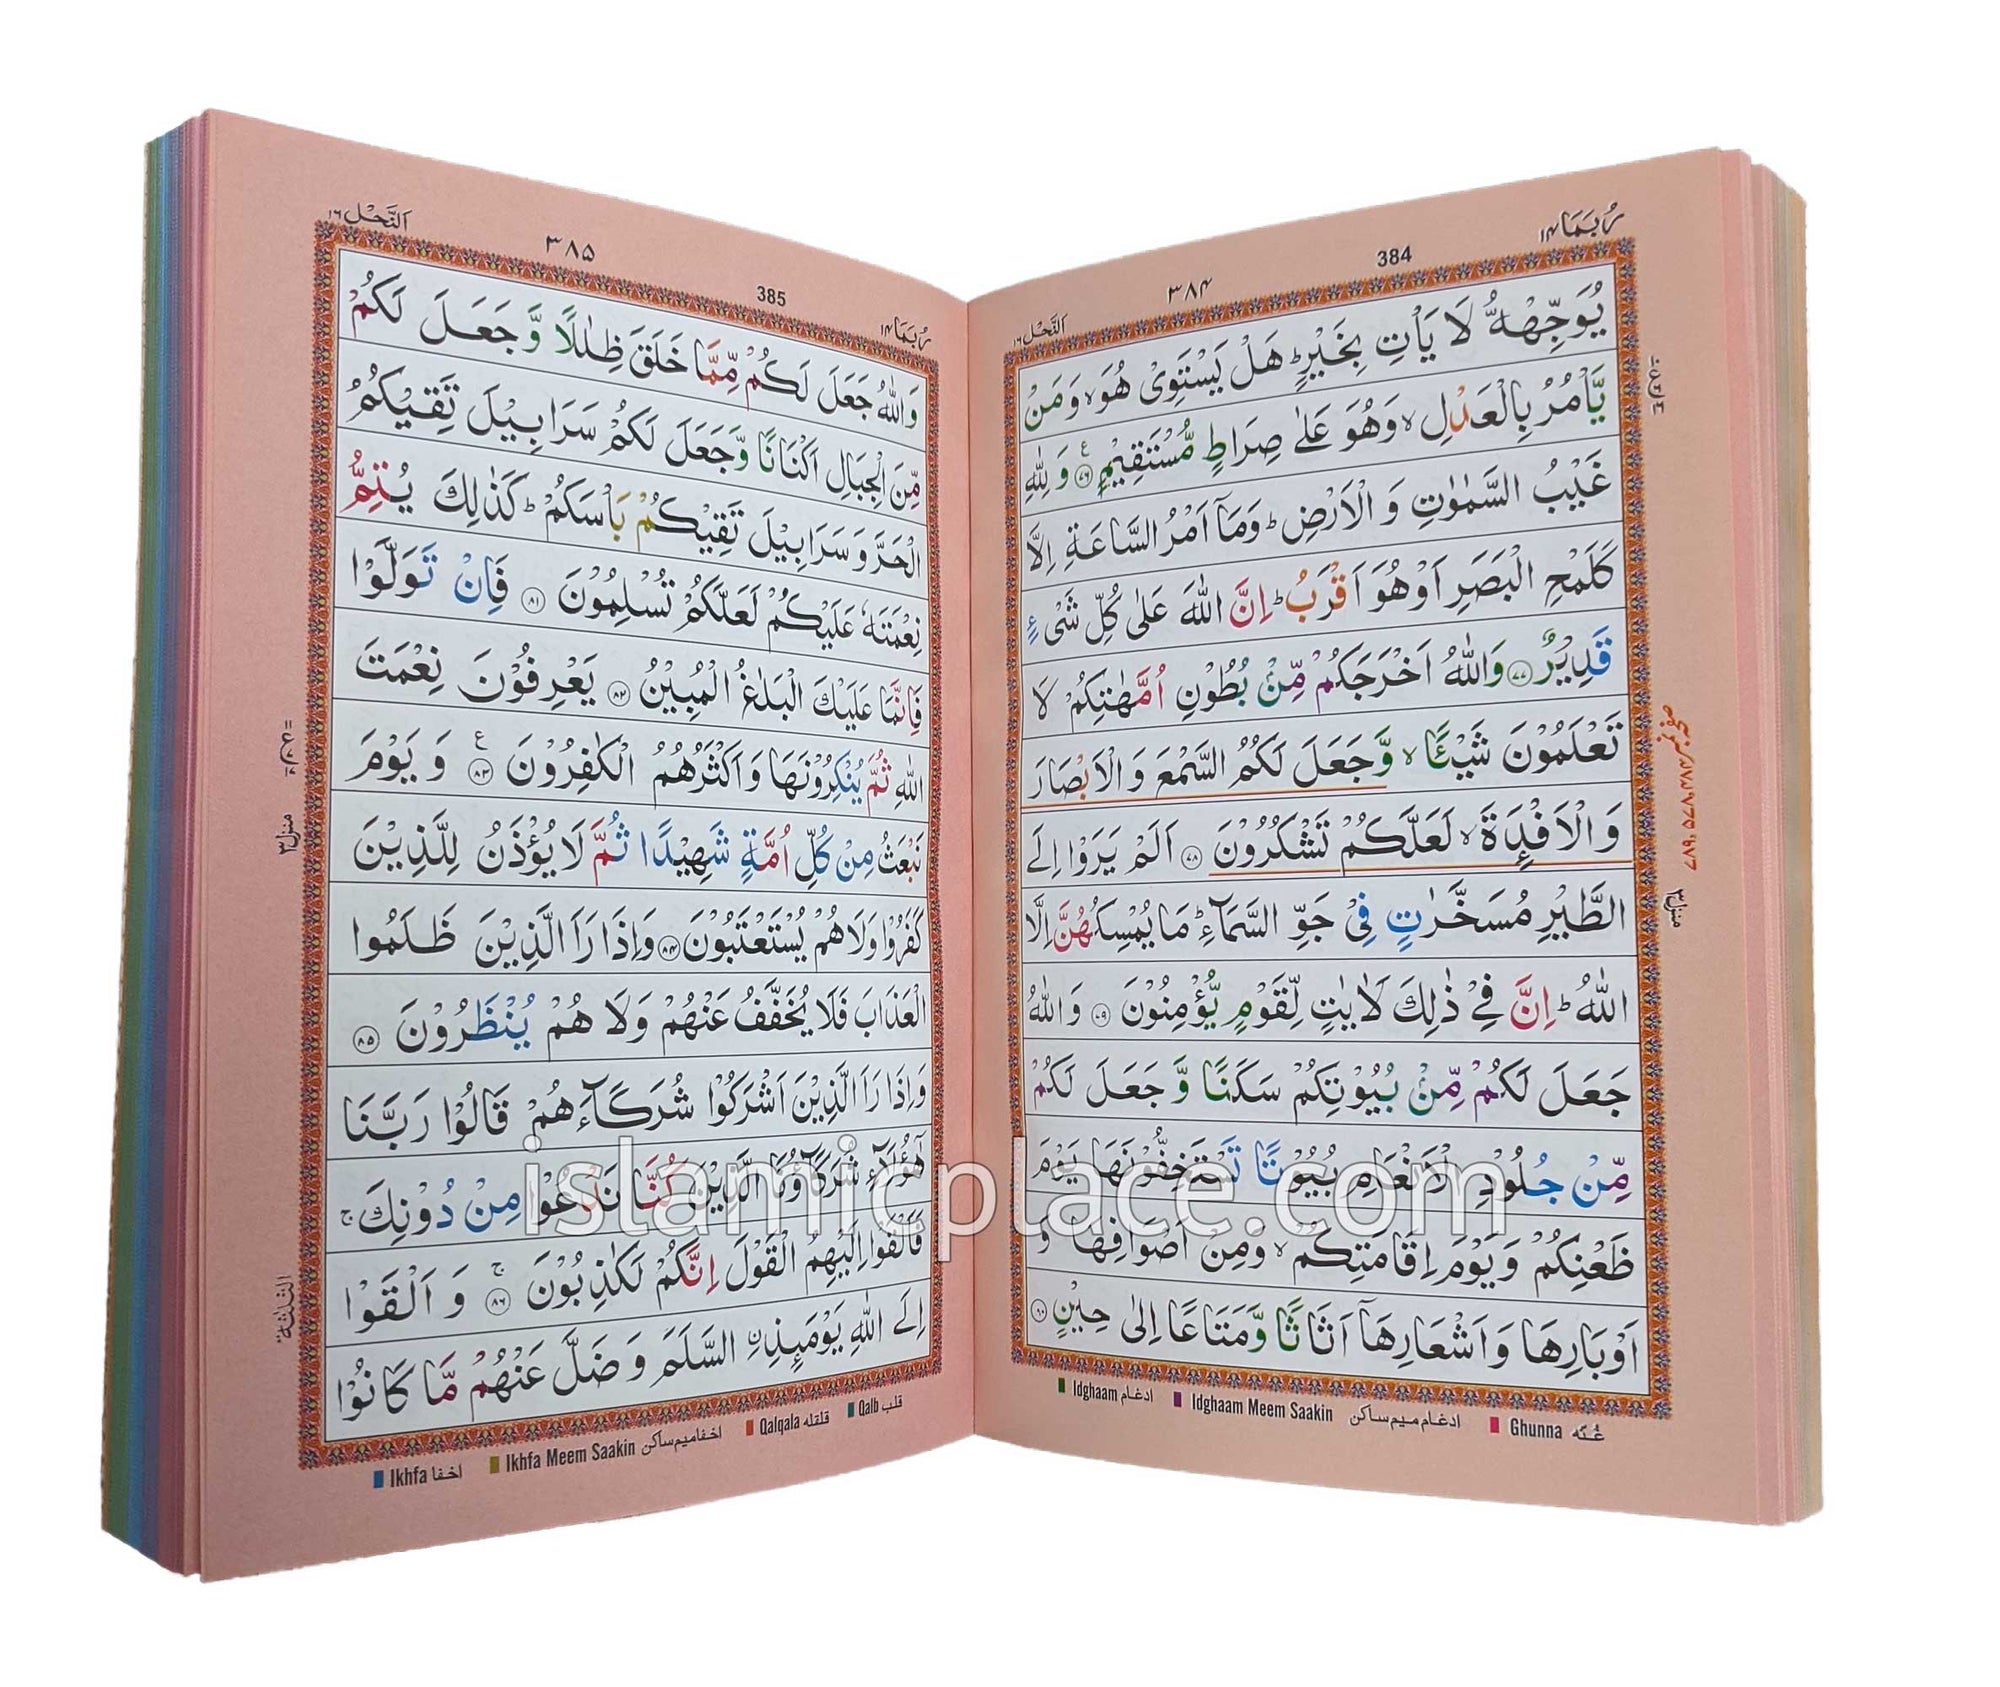 رُبَمَا ۱۴
384
۳۸۴
اَلنَّحْل ۱۶
يُوَجِّهْهُّ لَا يَاْتِ بِخَيْرٍ ؕ هَلْ يَسْتَوِىْ هُوَ ۙ وَمَنْ
يَّاْمُرُ بِالْعَدْلِ ۙ وَهُوَ عَلٰى صِرَاطٍ مُّسْتَقِيْمٍ ﴿۷۶﴾ وَ لِلّٰهِ
غَيْبُ السَّمٰوٰتِ وَ الْاَرْضِ ؕ وَمَاۤ اَمْرُ السَّاعَةِ اِلَّا
كَلَمْحِ الْبَصَرِ اَوْ هُوَ اَقْرَبُ ؕ اِنَّ اللّٰهَ عَلٰى كُلِّ شَىْءٍ
قَدِيْرٌ ﴿۷۷﴾ وَاللّٰهُ اَخْرَجَكُمْ مِّنْۢ بُطُوْنِ اُمَّهٰتِكُمْ لَا
تَعْلَمُوْنَ شَيْـًٔا ۙ وَّ جَعَلَ لَكُمُ السَّمْعَ وَ الْاَبْصَارَ
وَ الْاَفْـِٕدَةَ ۙ لَعَلَّكُمْ تَشْكُرُوْنَ ﴿۷۸﴾ اَلَمْ يَرَوْا اِلَى
الطَّيْرِ مُسَخَّرٰتٍ فِىْ جَوِّ السَّمَآءِ ؕ مَا يُمْسِكُهُنَّ اِلَّا
اللّٰهُ ؕ اِنَّ فِىْ ذٰلِكَ لَاٰيٰتٍ لِّقَوْمٍ يُّؤْمِنُوْنَ ﴿۷۹﴾ وَ اللّٰهُ
جَعَلَ لَكُمْ مِّنْۢ بُيُوْتِكُمْ سَكَنًا وَّ جَعَلَ لَكُمْ
مِّنْ جُلُوْدِ الْاَنْعَامِ بُيُوْتًا تَسْتَخِفُّوْنَهَا يَوْمَ
ظَعْنِكُمْ وَ يَوْمَ اِقَامَتِكُمْ ۙ وَمِنْ اَصْوَافِهَا وَ
اَوْبَارِهَا وَ اَشْعَارِهَاۤ اَثَاثًا وَّ مَتَاعًا اِلٰى حِيْنٍ ﴿۸۰﴾
Idghaam ادغام
Idghaam Meem Saakin ادغام میم ساکن
Ghunna غُنّه
منزل ۳
رُبَمَا ۱۴
385
۳۸۵
اَلنَّحْل ۱۶
وَ اللّٰهُ جَعَلَ لَكُمْ مِّمَّا خَلَقَ ظِلٰلًا وَّ جَعَلَ لَكُمْ
مِّنَ الْجِبَالِ اَكْنَانًا وَّ جَعَلَ لَكُمْ سَرَابِيْلَ تَقِيْكُمُ
الْحَرَّ وَ سَرَابِيْلَ تَقِيْكُمْ بَاْسَكُمْ ؕ كَذٰلِكَ يُتِمُّ
نِعْمَتَهٗ عَلَيْكُمْ لَعَلَّكُمْ تُسْلِمُوْنَ ﴿۸۱﴾ فَاِنْ تَوَلَّوْا
فَاِنَّمَا عَلَيْكَ الْبَلٰغُ الْمُبِيْنُ ﴿۸۲﴾ يَعْرِفُوْنَ نِعْمَتَ
اللّٰهِ ثُمَّ يُنْكِرُوْنَهَا وَ اَكْثَرُهُمُ الْكٰفِرُوْنَ ﴿۸۳﴾ وَ يَوْمَ
نَبْعَثُ مِنْ كُلِّ اُمَّةٍ شَهِيْدًا ثُمَّ لَا يُؤْذَنُ لِلَّذِيْنَ
كَفَرُوْا وَلَا هُمْ يُسْتَعْتَبُوْنَ ﴿۸۴﴾ وَاِذَا رَاَ الَّذِيْنَ ظَلَمُوا
الْعَذَابَ فَلَا يُخَفَّفُ عَنْهُمْ وَلَا هُمْ يُنْظَرُوْنَ ﴿۸۵﴾
وَ اِذَا رَاَ الَّذِيْنَ اَشْرَكُوْا شُرَكَآءَهُمْ قَالُوْا رَبَّنَا
هٰۤؤُلَآءِ شُرَكَآؤُنَا الَّذِيْنَ كُنَّا نَدْعُوْا مِنْ دُوْنِكَ ۚ
فَاَلْقَوْا اِلَيْهِمُ الْقَوْلَ اِنَّكُمْ لَكٰذِبُوْنَ ﴿۸۶﴾ وَ اَلْقَوْا
اِلَى اللّٰهِ يَوْمَئِذِ ۣالسَّلَمَ وَ ضَلَّ عَنْهُمْ مَّا كَانُوْا
Ikhfa اخفا
Ikhfa Meem Saakin اخفا میم ساکن
Qalqala قلقله
Qalb قلب
منزل ۳
الثلثة
islamicplace.com